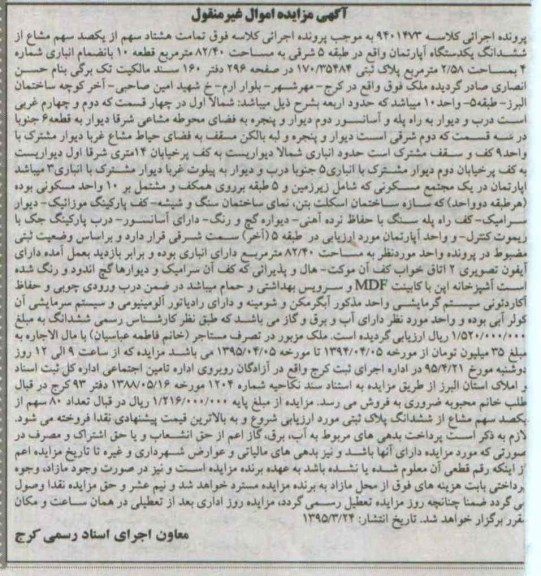 آگهی مزایده اموال غیرمنقول
پرونده اجرائی کلاسه ۹۴۰۱۴۷۳ به موجب پرونده اجرائی کلاسه فوق تمامت هشتاد سهم از یکصد سهم مشاع از
ششدانگ یکدستگاه آپارتمان واقع در طبقه ۵ شرقی به مساحت ۸۲/۴۰ مترمربع قطعه ۱۰ بانضمام انباری شماره
۴ بمساحت ۲/۵۸ مترمربع پلاک ثبتی ۱۷۰/۳۵۴۸۴ در صفحه ۲۹۶ دفتر ۱۶۰ سند مالکیت تک برگی بنام حسن
انصاری صادر گردیده ملک فوق واقع در کرج- مهرشهر- بلوار ارم- خ شهید امین صاحبی- آخر کوچه ساختمان
البرز- طبقه۵- واحد۱۰ میباشد که حدود اربعه بشرح ذیل میباشد: شمالاً اول در چهار قسمت که دوم و چهارم غربی
است درب و دیوار به راه پله و آسانسور دوم دیوار و پنجره به فضای محوطه مشاعی شرقا دیوار به قطعه۶ جنوبا
در سه قسمت که دوم شرقی است دیوار و پنجره و لبه بالکن مسقف به فضای حیاط مشاع غربا دیوار مشترک با
واحد۹ کف و سقف مشترک است حدود انباری شمالا دیواریست به کف پرخیابان ۱۴متری شرقا اول دیواریست
به کف پرخیابان دوم دیوار مشترک با انباری۵ جنوبا درب و دیوار به پیلوت غربا دیوار مشترک با انباری۳ میباشد
آپارتمان در یک مجتمع مسکونی که شامل زیرزمین و ۵ طبقه برروی همکف و مشتمل بر ۱۰ واحد مسکونی بوده
(هرطبقه دوواحد) که سازه ساختمان اسکلت بتن، نمای ساختمان سنگ و شیشه- کف پارکینگ موزائیک- دیوار
سرامیک- کف راه پله سنگ با حفاظ نرده آهنی- دیواره گچ و رنگ- دارای آسانسور- درب پارکینگ جک با
ریموت کنترل- و واحد آپارتمان مورد ارزیابی در طبقه ۵ (آخر) سمت شرقی قرار دارد و براساس وضعیت ثبتی
مضبوط در پرونده واحد موردنظر به مساحت ۸۲/۴۰ مترمربع دارای انباری بوده و برابر بازدید بعمل آمده دارای
آیفون تصویری ۲ اتاق خواب کف آن موکت- هال و پذیرائی که کف آن سرامیک و دیوارها گچ اندود و رنگ شده
است آشپزخانه اپن با کابینت MDF و سرویس بهداشتی و حمام میباشد در ضمن درب ورودی چوبی و حفاظ
آکاردئونی سیستم گرمایشی واحد مذکور آبگرمکن و شومینه و دارای رادیاتور آلومینیومی و سیستم سرمایشی آن
کولر آبی بوده و واحد مورد نظر دارای آب و برق و گاز می باشد که طبق نظر کارشناس رسمی ششدانگ به مبلغ
۱/۵۲۰/۰۰۰/۰۰۰ ریال ارزیابی گردیده است. ملک مزبور در تصرف مستاجر (خانم فاطمه عباسیان) با مال الاجاره به
مبلغ ۳۵ میلیون تومان از مورخه ۱۳۹۴/۰۴/۰۵ تا مورخه ۱۳۹۵/۰۴/۰۵ می باشد مزایده که از ساعت ۹ الی ۱۲ روز
دوشنبه مورخ ۹۵/۴/۲۱ در اداره اجرای ثبت کرج واقع در آزادگان روبروی اداره تامین اجتماعی اداره کل ثبت اسناد
و املاک استان البرز از طریق مزایده به استناد سند نکاحیه شماره ۱۲۰۴ مورخه ۱۳۸۸/۰۵/۱۶ دفتر ۹۳ کرج در قبال
طلب خانم محبوبه ضروری به فروش می رسد. مزایده از مبلغ پایه ۱/۲۱۶/۰۰۰/۰۰۰ ریال در قبال تعداد ۸۰ سهم از
یکصد سهم مشاع از ششدانگ پلاک ثبتی مورد ارزیابی شروع و به بالاترین قیمت پیشنهادی نقدا فروخته می شود.
لازم به ذکر است پرداخت بدهی های مربوط به آب، برق، گاز اعم از حق انشعاب و یا حق اشتراک و مصرف در
صورتی که مورد مزایده دارای آنها باشد و نیز بدهی های مالیاتی و عوارض شهرداری و غیره تا تاریخ مزایده اعم
از اینکه رقم قطعی آن معلوم شده یا نشده باشد به عهده برنده مزایده است و نیز در صورت وجود مازاد، وجوه
پرداختی بابت هزینه های فوق از محل مازاد به برنده مزایده مسترد خواهد شد و نیم عشر و حق مزایده نقدا وصول
می گردد ضمنا چنانچه روز مزایده تعطیل رسمی گردد، مزایده روز اداری بعد از تعطیلی در همان ساعت و مکان
مقرر برگزار خواهد شد. تاریخ انتشار: ۱۳۹۵/۳/۲۴
معاون اجرای اسناد رسمی کرج